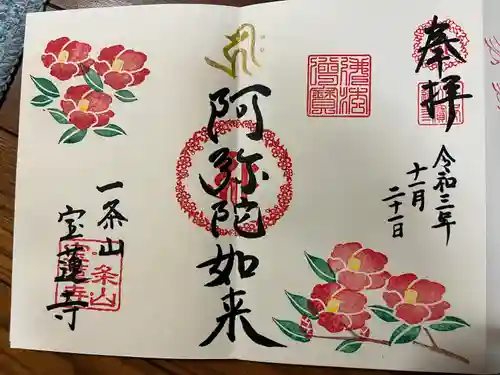 奉拝
令和三年
十一月
二十一日
阿弥陀如来
一条山
宝蓮寺